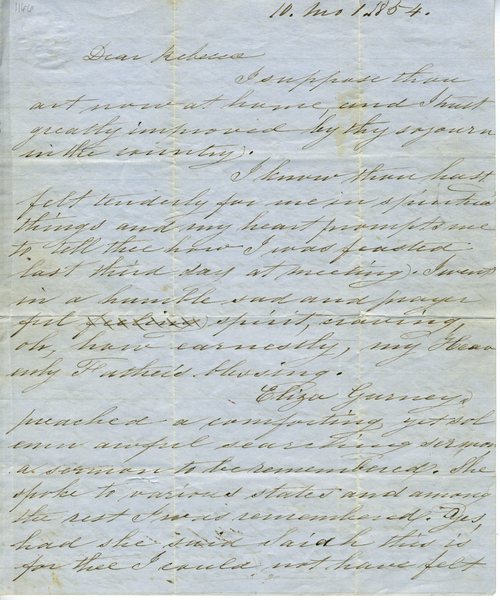 1166
10. Mo 1. 1854.
Dear Rebecca
I suppose thou
art now at home, and I trust
greatly improved by thy sojourn
in the country.
I know thou hast
felt tenderly for me in spiritual
things and my heart prompts me
to tell thee how I was feasted
last third day at meeting. I went
in a humble sad and prayer
ful spirit, craving
oh, how earnestly, my Heav
enly Father's blessing.
Eliza Gurney
preached a comforting yet sol
emn awful searching sermon
a sermon to be remembered. She
spoke to various states and among
the rest I was remembered. Yes,
had she said Sarah this is
for thee I could not have felt